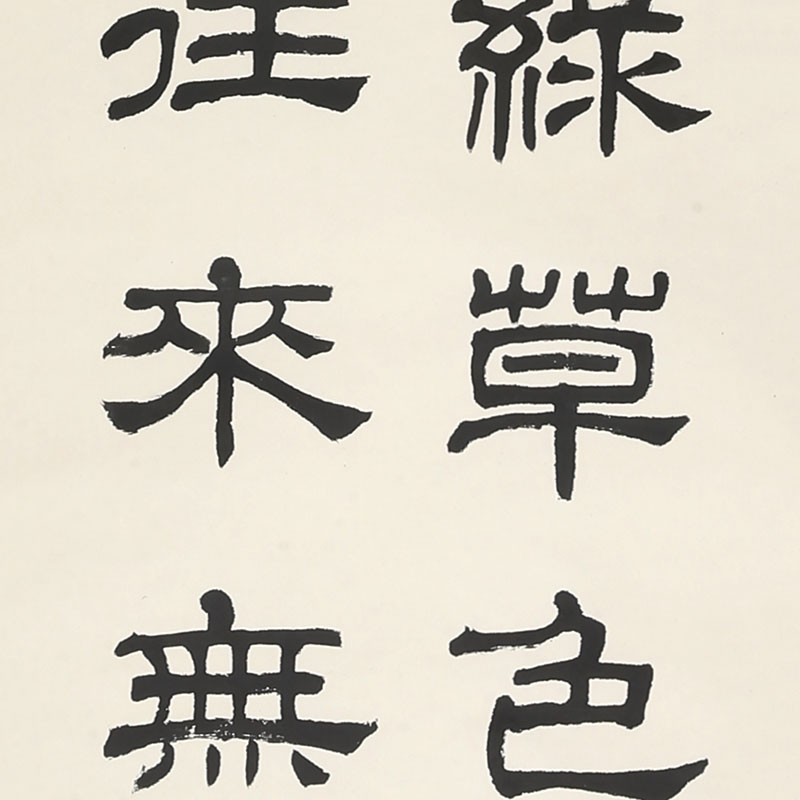 綠草色
往來無